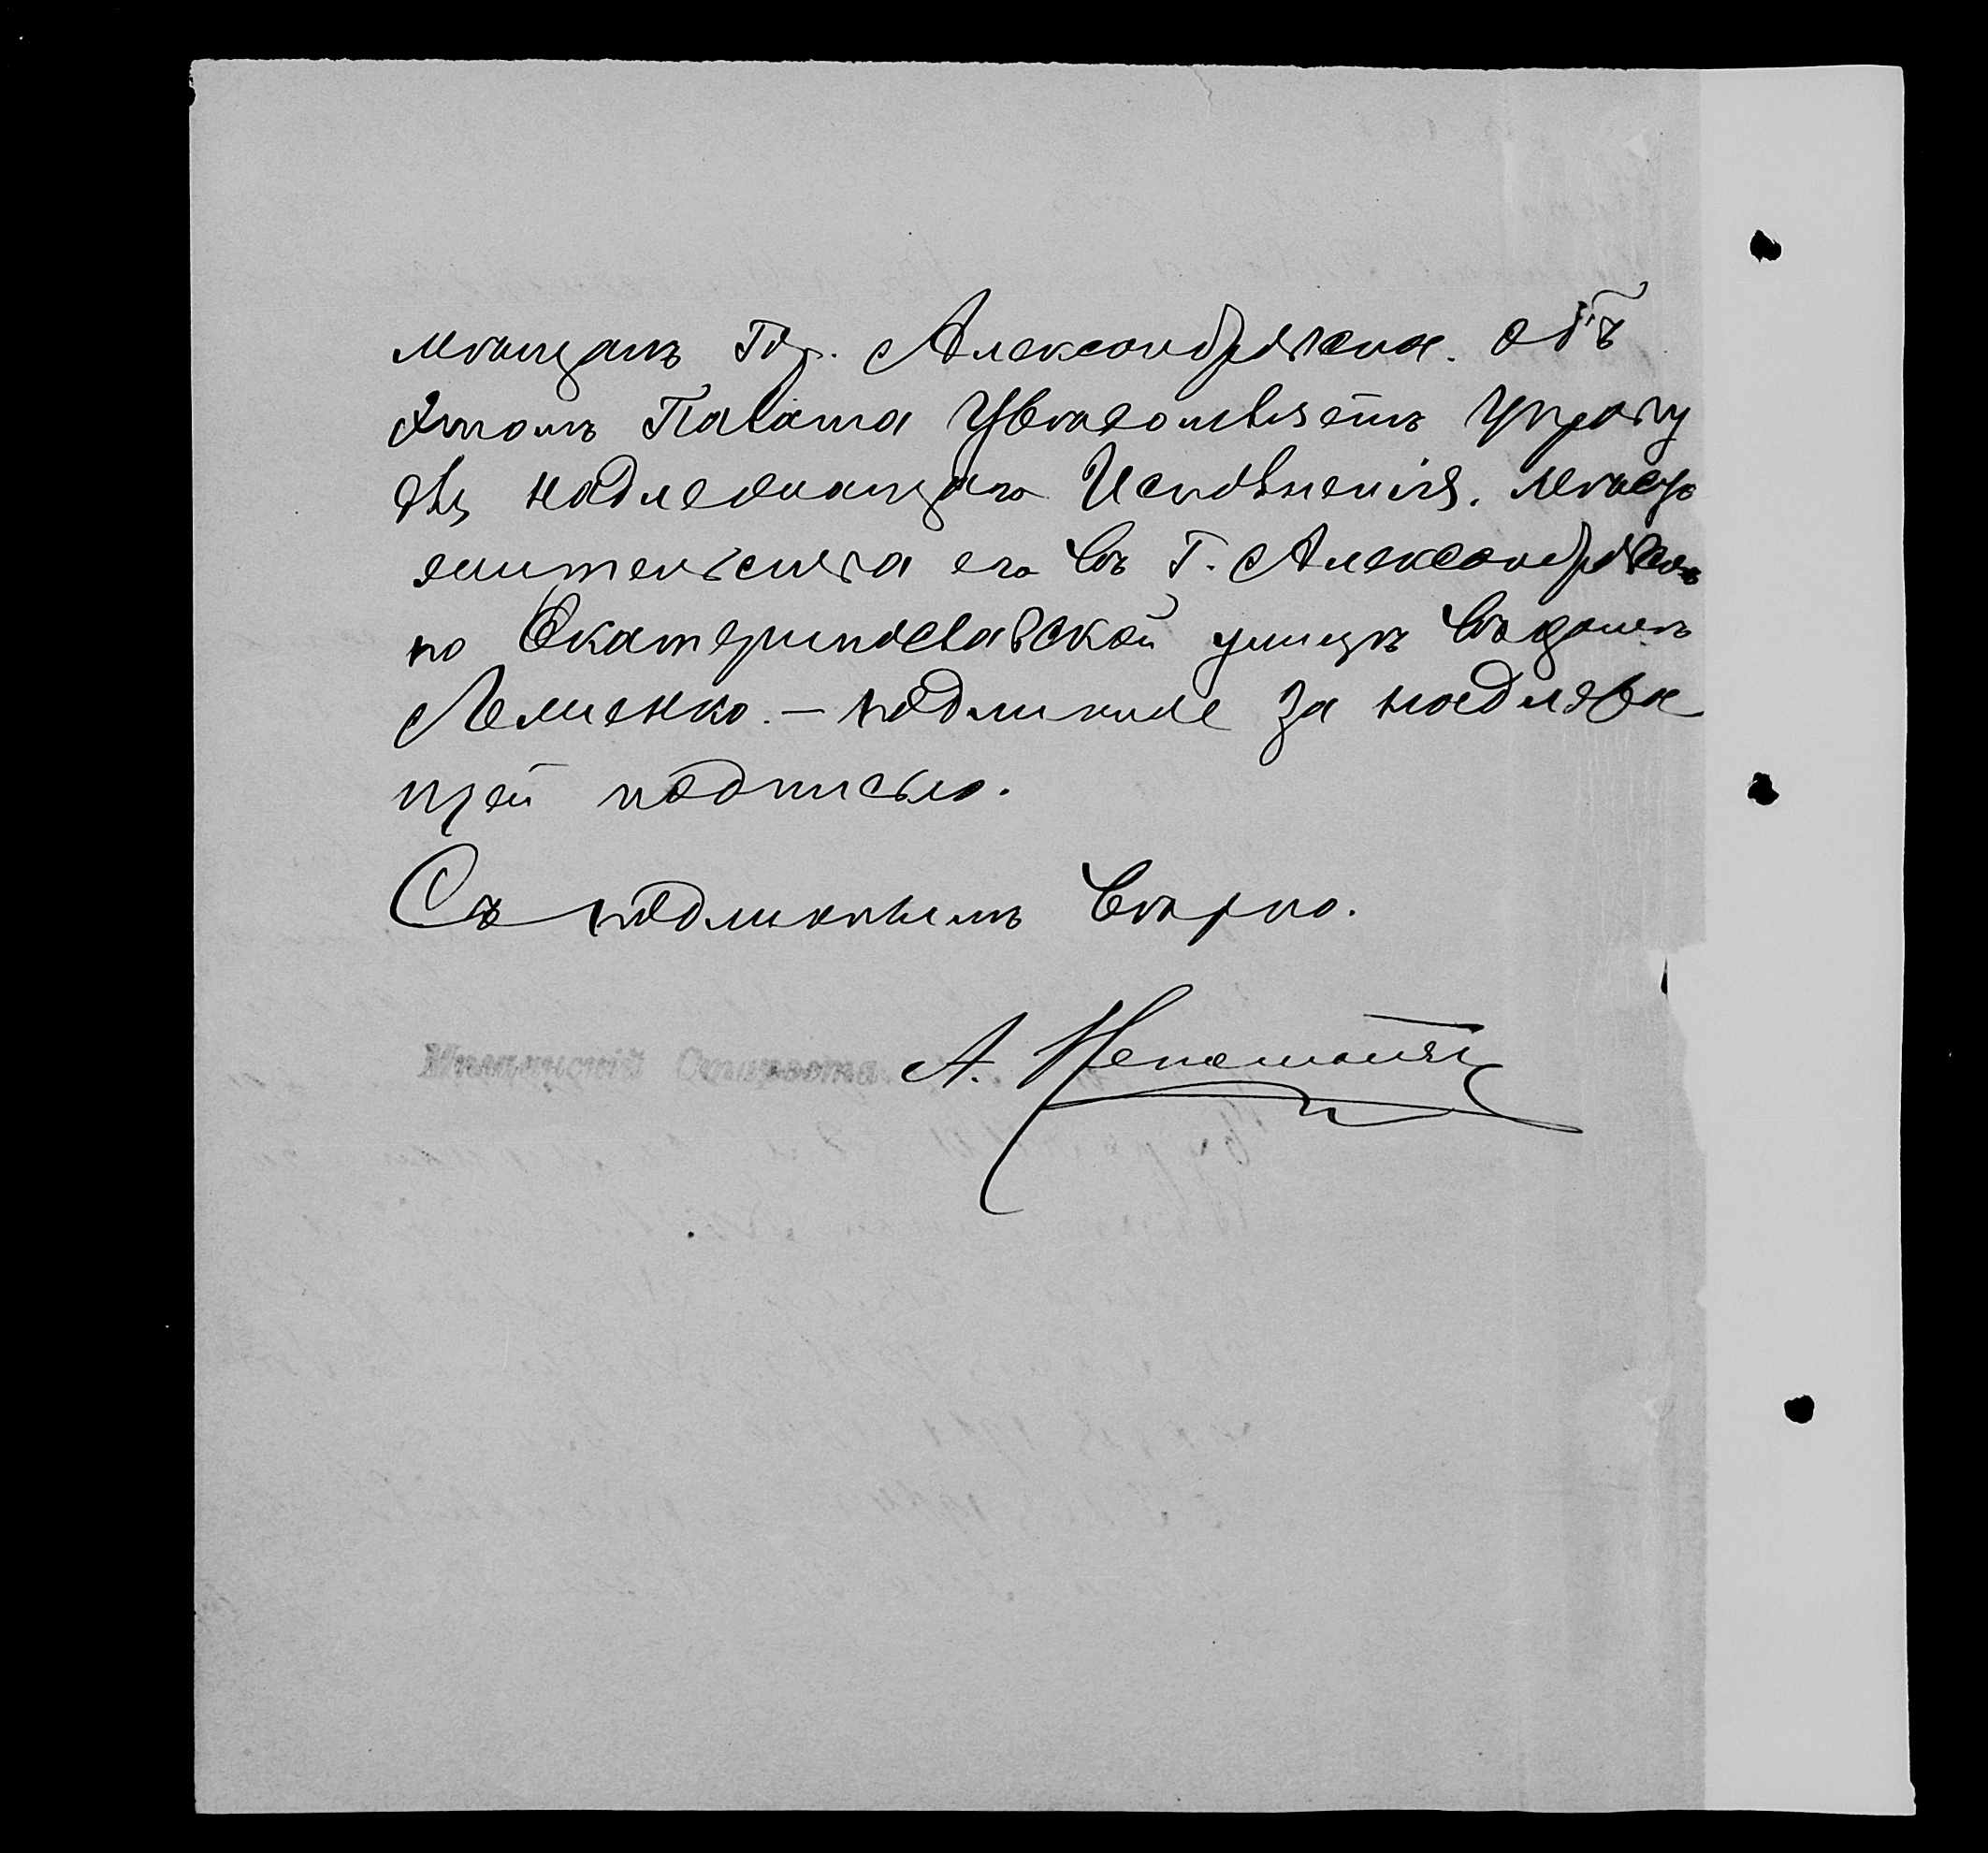 мѣщанъ гор. Александровска. Объ
этомъ Палата увѣдомляетъ Управу
для надлежащаго исполненія. Мѣсто
жительства его въ г. Александровскѣ
по Екатеринославской улицѣ въ домѣ
Лешенко. — подлинное за надлежа
щей подписью.
Съ подлиннымъ вѣрно.
Мѣщанскій Староста
А.